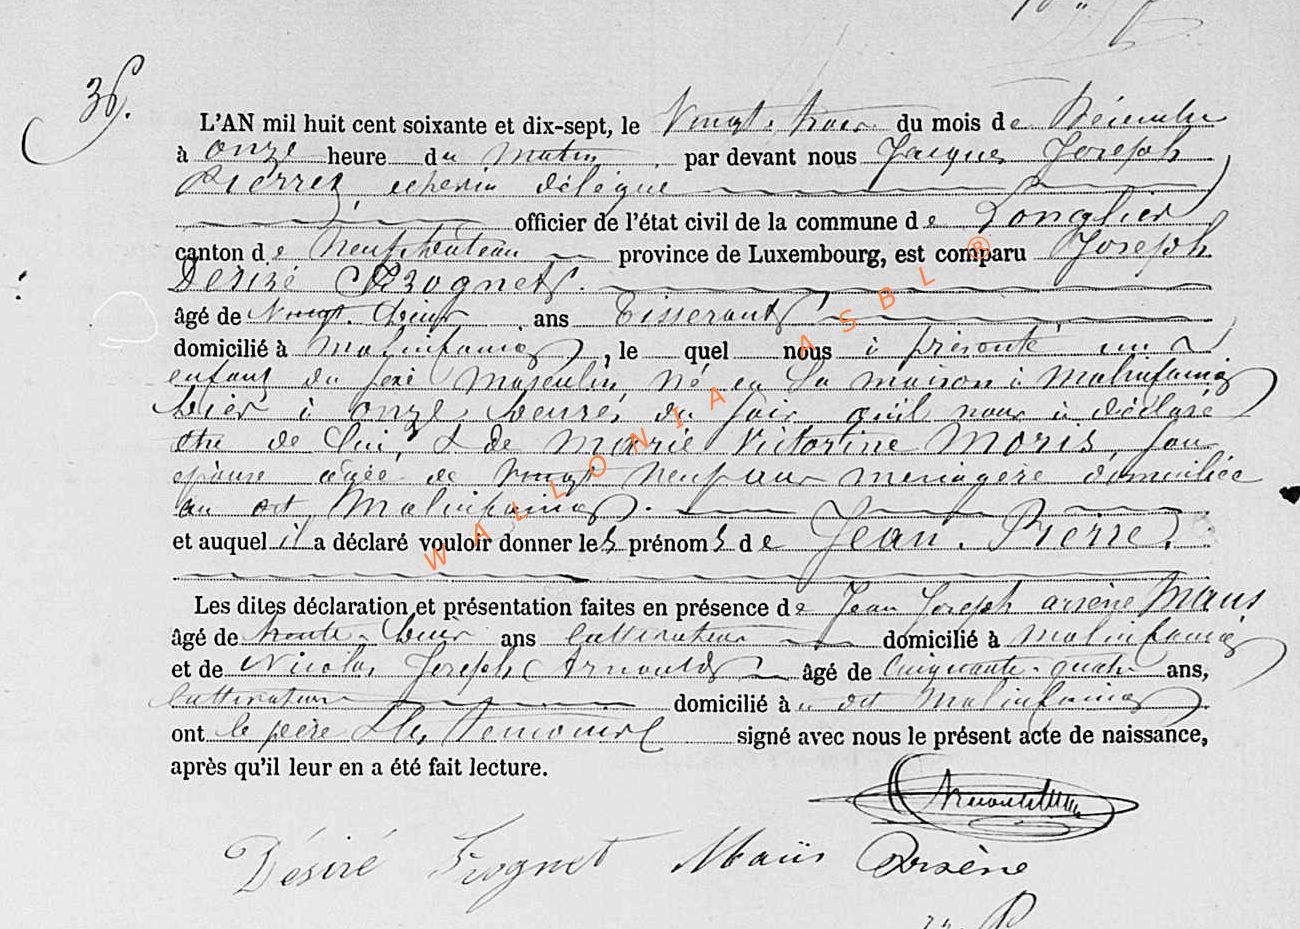 36.
L'AN mil huit cent soixante et dix-sept, le Vingt-trois du mois de Décembre
à onze heure du matin par devant nous Jacques Joseph
Pierret echevin délégué
officier de l'état civil de la commune de Longlier
canton de Neufchateau province de Luxembourg, est comparu Joseph
Derizé Frognet.
âgé de Vingt- ans Tisserant
domicilié à Malinfaing, le quel nous à présenté un
enfant du sexe Masculin né en Sa maison à Malinfaing
hier à onze heures du soir qu'il nous à déclaré
etre de lui, & de Marie Victorine Moris, son
épouse agée de vingt neuf ans menagère domiciliée
au dit Malinfaing.
et auquel il a déclaré vouloir donner les prénoms de Jean. Pierre.
Les dites déclaration et présentation faites en présence de Jean Joseph arsène Maus
âgé de trente- ans cultivateur domicilié à Malinfaing
et de Nicolas Joseph Arnould âgé de Cinquante-quatre ans,
cultivateur domicilié à u dit Malinfaing
ont le père & les temoins signé avec nous le présent acte de naissance,
après qu'il leur en a été fait lecture.
Désiré Frognet Maus Arsène
WALLONIA ASBL ®